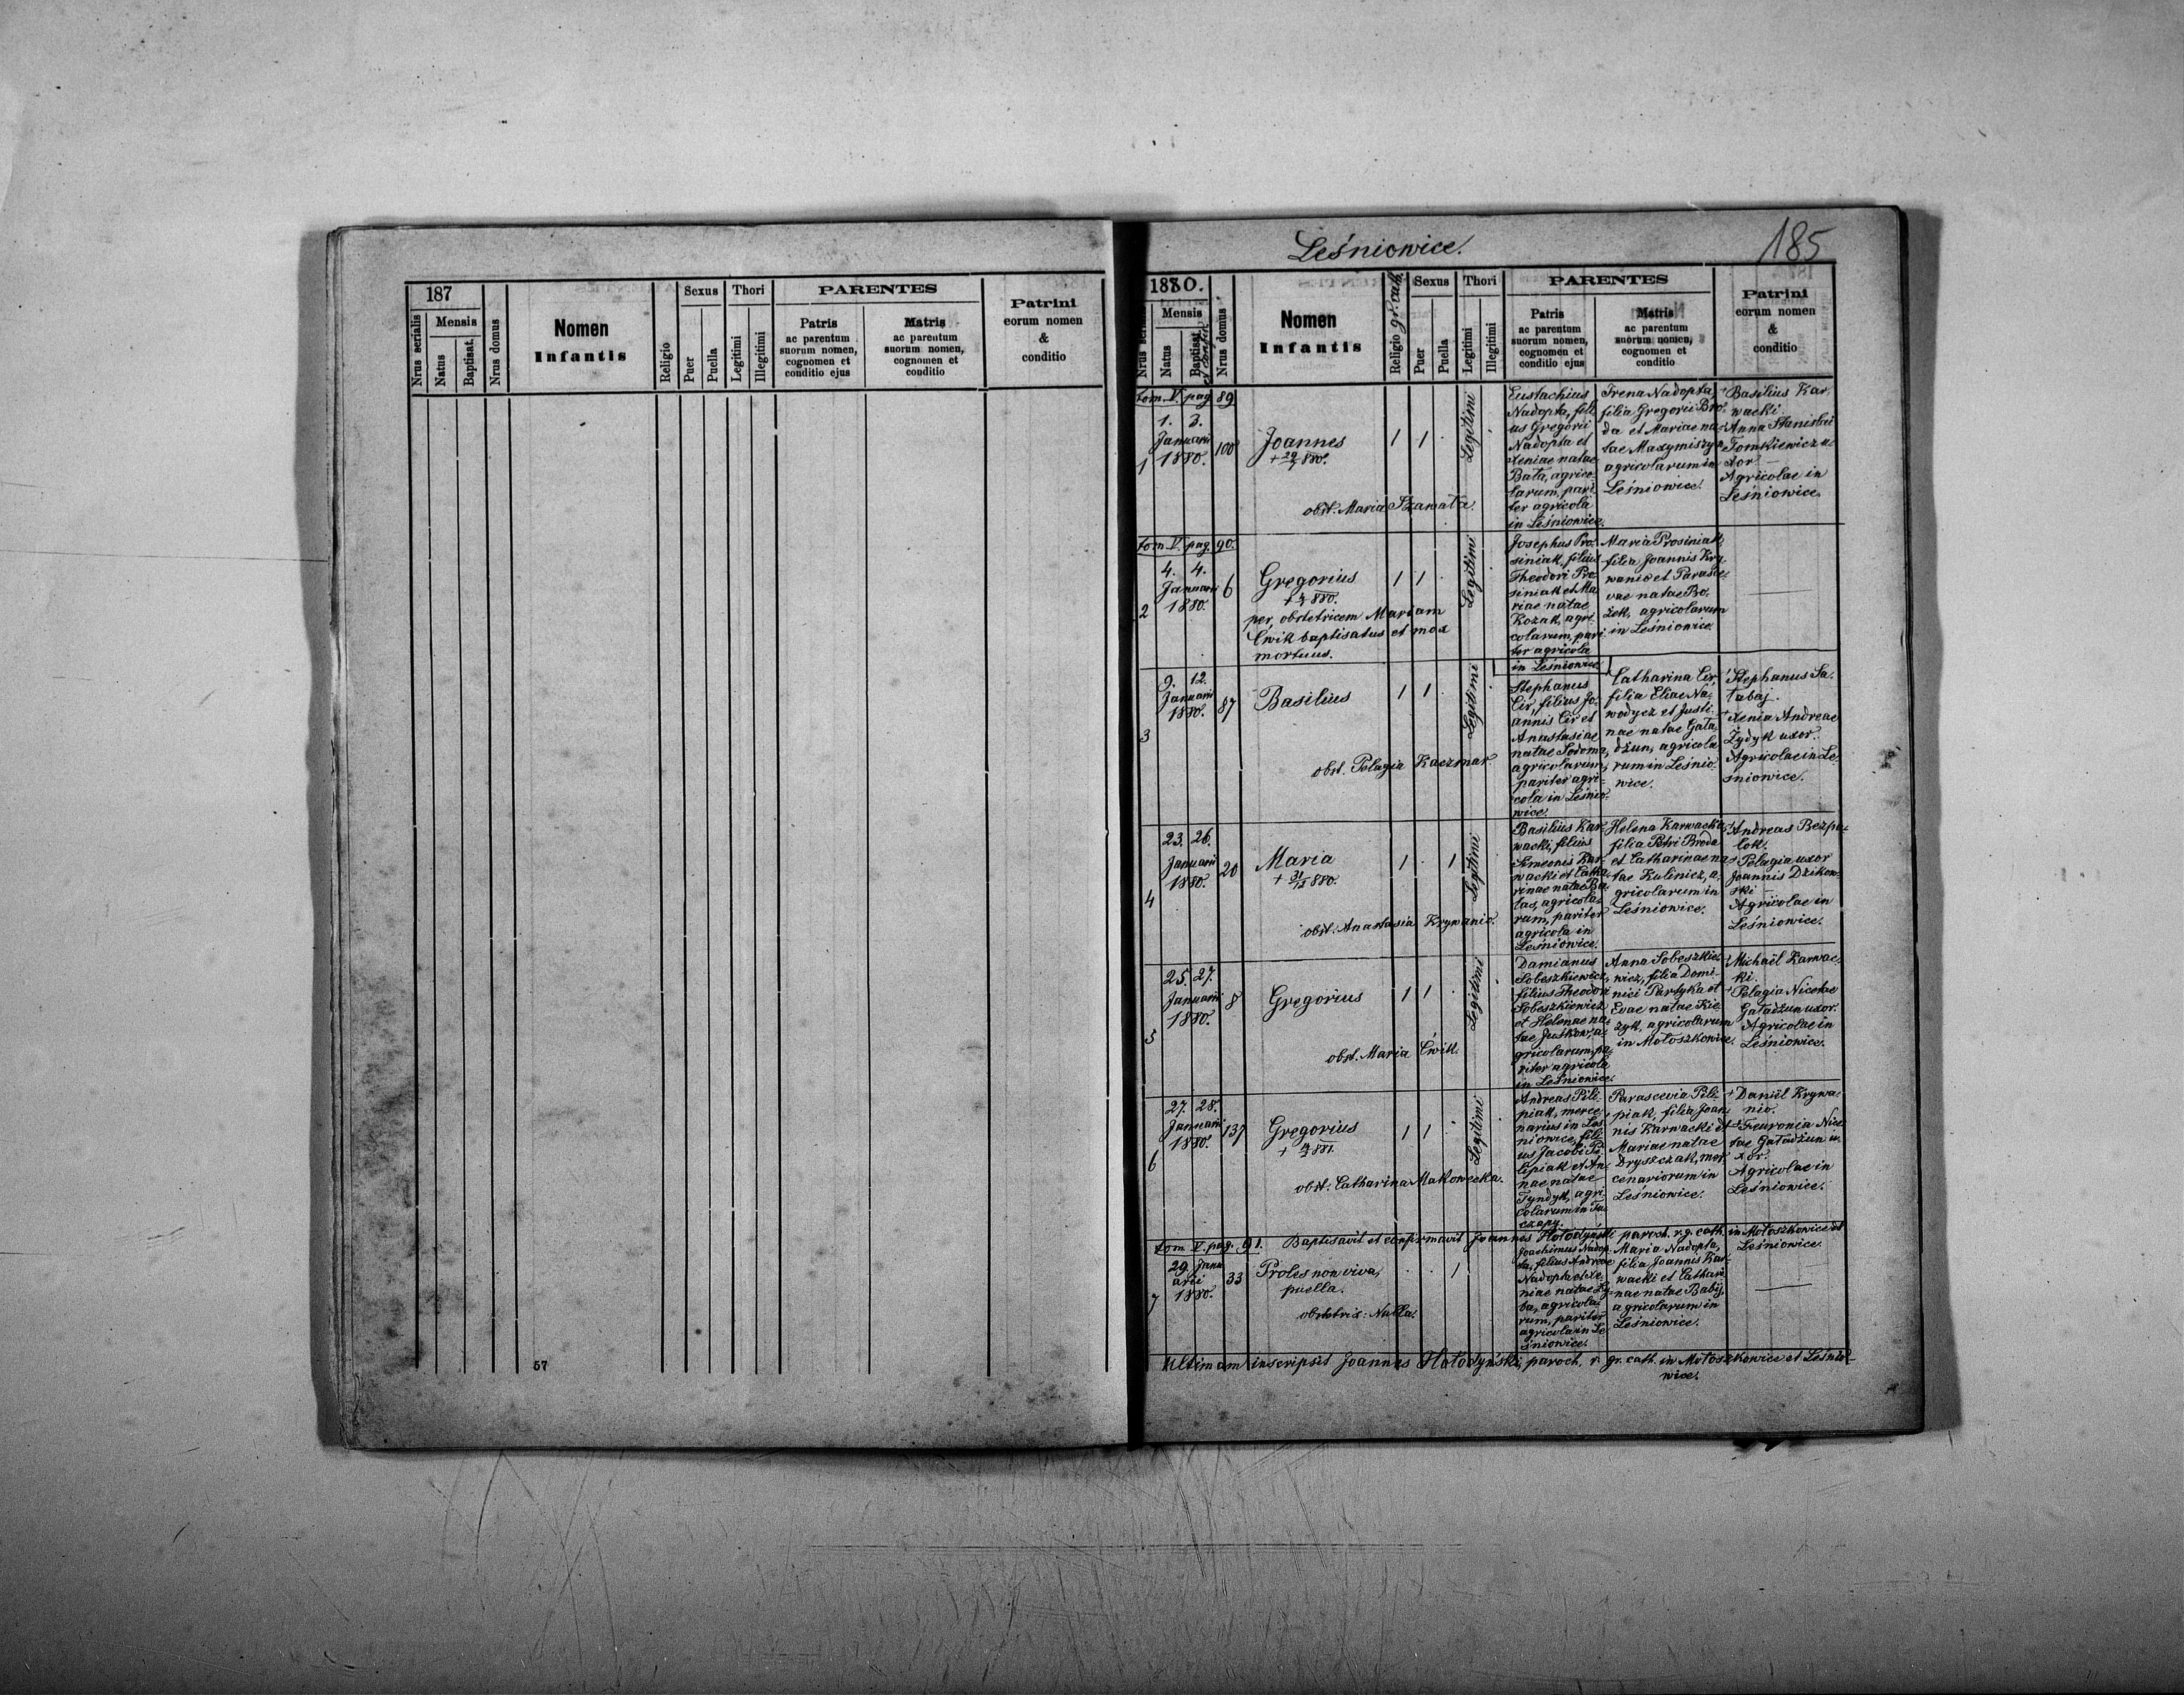 187
Nrus serialis
Mensis
Natus
Baptisat.
Nrus domus
Nomen
Infantis
Religio
Sexus
Puer
Puella
Thori
Legitimi
Illegitimi
PARENTES
Patris
ac parentum
suorum nomen,
cognomen et
conditio ejus
Matris
ac parentum
suorum nomen,
cognomen et
conditio
Patrini
eorum nomen
&
conditio
57
Leśniowice.
185
1880.
Nrus serialis
Mensis
Natus
Baptisat.
et confir.
Nrus domus
Nomen
Infantis
Religio gr. cath.
Sexus
Puer
Puella
Thori
Legitimi
Illegitimi
PARENTES
Patris
ac parentum
suorum nomen,
cognomen et
conditio ejus
Matris
ac parentum
suorum nomen,
cognomen et
conditio
Patrini
eorum nomen
&
conditio
tom. V. pag. 89
1
1. 3.
Januarii
1880.
100
Joannes
obst. Maria Szawała.
1 1 .
Legitimi
Eustachius
Nadopta, fili-
us Gregorii
Nadopta et
Xeniae natae
Bała, agrico-
larum, pari-
ter agricola
in Leśniowice.
Irena Nadopta,
filia Gregorii Bro-
da et Mariae na-
tae Maxymiszyn
agricolarum in
Leśniowice.
Basilius Kar-
wacki.
Anna Stanislai
Tomkiewicz u-
xor
Agricolae in
Leśniowice.
tom V. pag. 90.
2
4. 4.
Januarii
1880.
6
Gregorius
+ 4/1 880.
per obstetricem Mariam
Ćwik baptisatus et mox
mortuus.
1 1 .
Legitimi
Josephus Pro-
siniak, filius
Theodori Pro-
siniak et Ma-
riae natae
Kozak, agri-
colarum, pari-
ter agricola
in Leśniowice.
Maria Prosiniak,
filia Joannis Kry-
wanio et Parasce-
vae natae Bo-
żek, agricolarum
in Leśniowice.
3
9. 12.
Januarii
1880.
87
Basilius
obst. Pelagia Kaczmar.
1 1 .
Legitimi
Stephanus
Cir, filius Jo-
annis Cir et
Anastasiae
natae Sodoma,
agricolarum,
pariter agri-
cola in Leśnio-
wice.
Catharina Cir,
filia Eliae Na-
wodycz et Justi-
nae natae Gała-
dżun, agricola-
rum in Leśnio-
wice.
Stephanus Sa-
łabaj.
Xenia Andreae
Żydyk uxor.
Agricolae in Le-
śniowice.
4
23. 26.
Januarii
1880.
20
Maria
+ 31/12 880.
obst. Anastasia Krywanio.
1 . 1
Legitimi
Basilius Kar-
wacki, filius
Simeonis Kar-
wacki et Catha-
rinae natae Ba-
łas, agricola-
rum, pariter
agricola in
Leśniowice.
Helena Karwacka,
filia Petri Broda
et Catharinae na-
tae Kulinicz, a-
gricolarum in
Leśniowice.
Andreas Bezpa-
lok.
Pelagia uxor
Joannis Dzikow-
ski
Agricolae in
Leśniowice.
5
25. 27.
Januarii
1880.
8
Gregorius
obst. Maria Ćwik.
1 1 .
Legitimi
Damianus
Sobeszkiewicz,
filius Theodori
Sobeszkiewicz
et Helenae na-
tae Juśkow, a-
gricolarum, pa-
riter agricola
in Leśniowice.
Anna Sobeszkie-
wicz, filia Domi-
nici Partyka et
Evae natae Kie-
zyk, agricolarum
in Mołoszkowice.
Michaël Karwac-
ki.
Pelagia Nicetae
Gaładżun uxor.
Agricolae in
Leśniowice.
6
27. 28.
Januarii
1880.
137
Gregorius
obst. Catharina Makowecka.
1 1 .
Legitimi
Andreas Pili-
piak, merce-
narius in Leś-
niowice, fili-
us Jacobi Pi-
lipiak et An-
nae natae
Tyndyk, agri-
colarum in Tu-
czapy.
Parascevia Pili-
piak, filia Joan-
nis Karwacki et
Mariae natae
Dryszczak, mer-
cenariorum in
Leśniowice.
Daniël Krywa-
nio.
Feuronia Nice-
tae Gaładżun u-
xor.
Agricolae in
Leśniowice.
tom V. pag. 91. Baptisavit et confirmavit Joannes Hołodyński paroch. r. g. cath. in Mołoszkowice et
Leśniowice.
7
29. Janu-
arii
1880.
33
Proles non viva,
puella.
obstetrix: Nulla.
. . 1
Joachimus Nadop-
ta, filius Andreae
Nadopta et Xe-
niae natae
agricola-
rum, pariter
agricola in Le-
śniowice.
Maria Nadopta,
filia Joannis Kar-
wacki et Cathari-
nae natae Babij,
agricolarum in
Leśniowice.
Ultimam inscripsit Joannes Hołodyński, paroch. r. gr. cath. in Mołoszkowice et Leśnio-
wice.